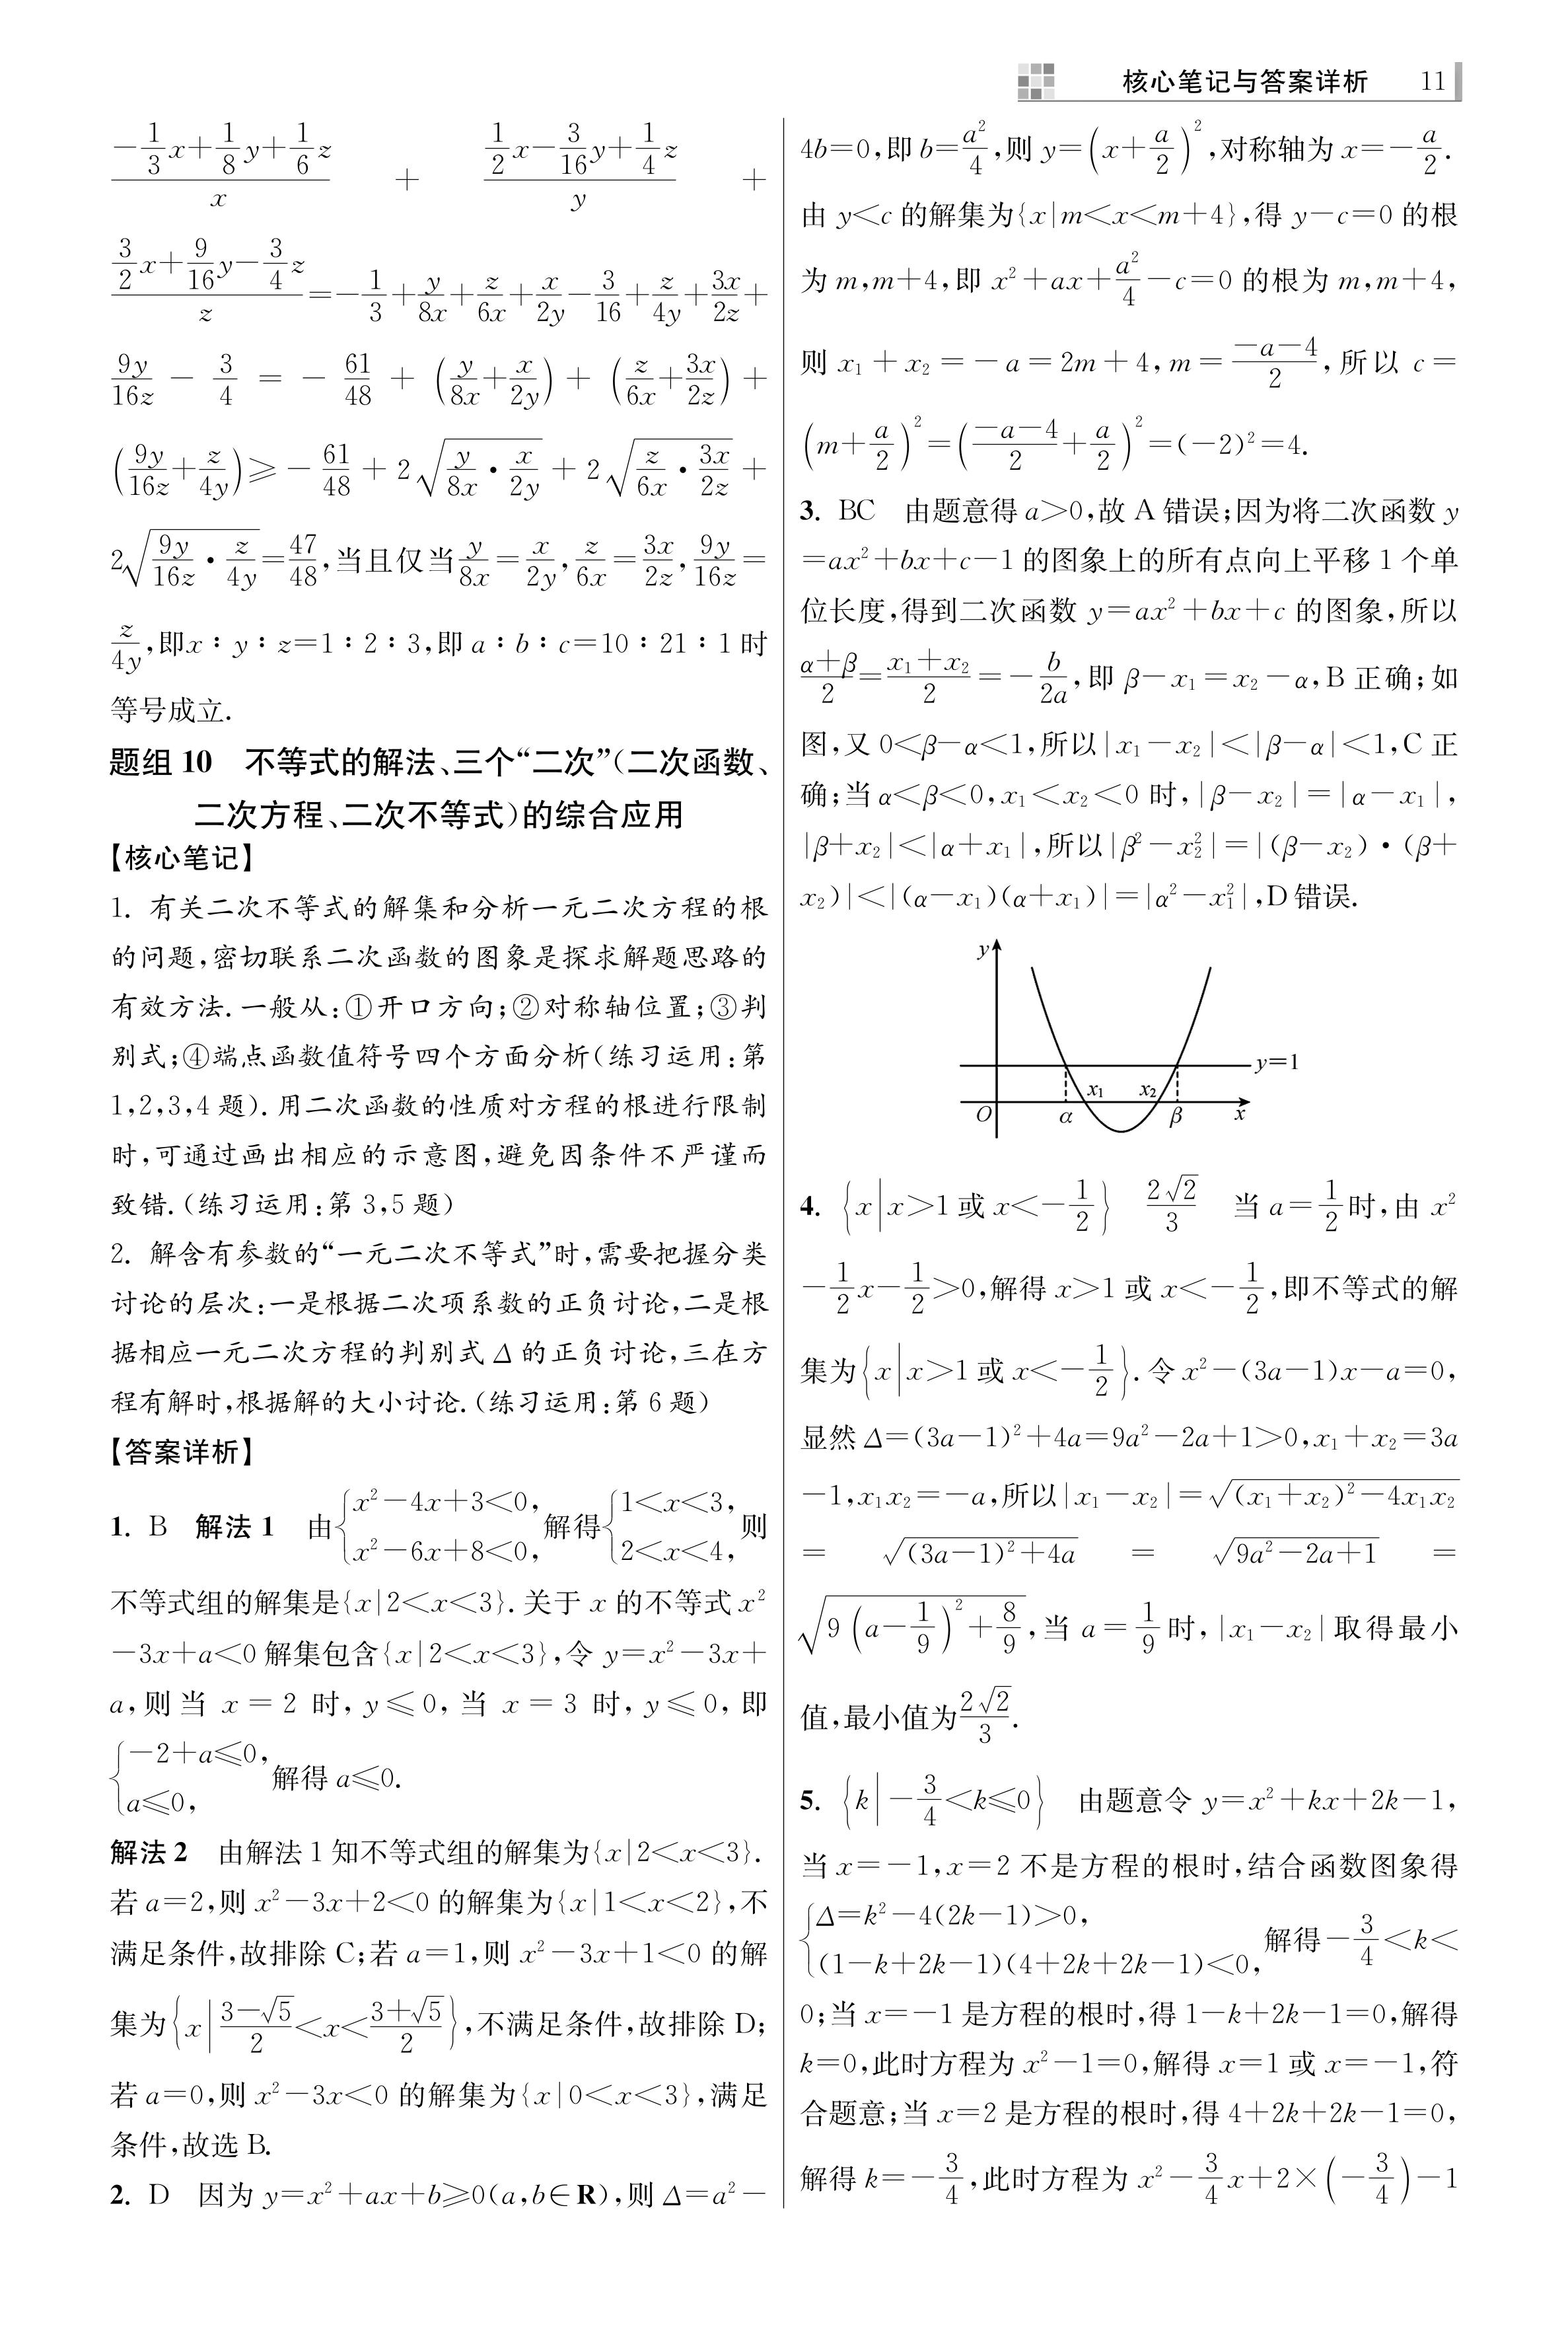 核心笔记与答案详析 11
$\frac{-\frac{1}{3}x+\frac{1}{8}y+\frac{1}{6}z}{x}$ + $\frac{\frac{1}{2}x-\frac{3}{16}y+\frac{1}{4}z}{y}$ +
$\frac{\frac{3}{2}x+\frac{9}{16}y-\frac{3}{4}z}{z}=-\frac{1}{3}+\frac{y}{8x}+\frac{z}{6x}+\frac{x}{2y}-\frac{3}{16}+\frac{z}{4y}+\frac{3x}{2z}+$
$\frac{9y}{16z}-\frac{3}{4}=-\frac{61}{48}+\left(\frac{y}{8x}+\frac{x}{2y}\right)+\left(\frac{z}{6x}+\frac{3x}{2z}\right)+$
$\left(\frac{9y}{16z}+\frac{z}{4y}\right)\geqslant-\frac{61}{48}+2\sqrt{\frac{y}{8x}\cdot\frac{x}{2y}}+2\sqrt{\frac{z}{6x}\cdot\frac{3x}{2z}}+$
$2\sqrt{\frac{9y}{16z}\cdot\frac{z}{4y}}=\frac{47}{48}$,当且仅当$\frac{y}{8x}=\frac{x}{2y},\frac{z}{6x}=\frac{3x}{2z},\frac{9y}{16z}=$
$\frac{z}{4y}$,即x∶y∶z=1∶2∶3,即 a∶b∶c=10∶21∶1 时
等号成立.
题组 10 不等式的解法、三个“二次”(二次函数、
二次方程、二次不等式)的综合应用
【核心笔记】
1. 有关二次不等式的解集和分析一元二次方程的根
的问题,密切联系二次函数的图象是探求解题思路的
有效方法.一般从:①开口方向;②对称轴位置;③判
别式;④端点函数值符号四个方面分析(练习运用:第
1,2,3,4 题).用二次函数的性质对方程的根进行限制
时,可通过画出相应的示意图,避免因条件不严谨而
致错.(练习运用:第 3,5 题)
2. 解含有参数的“一元二次不等式”时,需要把握分类
讨论的层次:一是根据二次项系数的正负讨论,二是根
据相应一元二次方程的判别式 Δ 的正负讨论,三在方
程有解时,根据解的大小讨论.(练习运用:第 6 题)
【答案详析】
1. B 解法 1 由$\begin{cases}x^2-4x+3<0,\\x^2-6x+8<0,\end{cases}$解得$\begin{cases}1<x<3,\\2<x<4,\end{cases}$则
不等式组的解集是{x|2<x<3}.关于 x 的不等式 $x^2$
$-3x+a<0$ 解集包含{x|2<x<3},令 $y=x^2-3x+$
a,则当 x=2 时,y⩽0,当 x=3 时,y⩽0,即
$\begin{cases}-2+a\leqslant0,\\a\leqslant0,\end{cases}$解得 a⩽0.
解法 2 由解法 1 知不等式组的解集为{x|2<x<3}.
若 a=2,则 $x^2-3x+2<0$ 的解集为{x|1<x<2},不
满足条件,故排除 C;若 a=1,则 $x^2-3x+1<0$ 的解
集为$\left\{x\middle|\frac{3-\sqrt{5}}{2}<x<\frac{3+\sqrt{5}}{2}\right\}$,不满足条件,故排除 D;
若 a=0,则 $x^2-3x<0$ 的解集为{x|0<x<3},满足
条件,故选 B.
2. D 因为 $y=x^2+ax+b\geqslant0(a,b\in\mathbf{R})$,则 $\Delta=a^2-$
4b=0,即 $b=\frac{a^2}{4}$,则 $y=\left(x+\frac{a}{2}\right)^2$,对称轴为 $x=-\frac{a}{2}$.
由 y<c 的解集为{x|m<x<m+4},得 y-c=0 的根
为 m,m+4,即 $x^2+ax+\frac{a^2}{4}-c=0$ 的根为 m,m+4,
则 $x_1+x_2=-a=2m+4,m=\frac{-a-4}{2}$,所以 c=
$\left(m+\frac{a}{2}\right)^2=\left(\frac{-a-4}{2}+\frac{a}{2}\right)^2=(-2)^2=4$.
3. BC 由题意得 a>0,故 A 错误;因为将二次函数 y
$=ax^2+bx+c-1$ 的图象上的所有点向上平移 1 个单
位长度,得到二次函数 $y=ax^2+bx+c$ 的图象,所以
$\frac{\alpha+\beta}{2}=\frac{x_1+x_2}{2}=-\frac{b}{2a}$,即 $\beta-x_1=x_2-\alpha$,B 正确;如
图,又 0<β-α<1,所以$|x_1-x_2|<|\beta-\alpha|<1$,C 正
确;当 α<β<0,$x_1<x_2<0$ 时,$|\beta-x_2|=|\alpha-x_1|$,
$|\beta+x_2|<|\alpha+x_1|$,所以$|\beta^2-x_2^2|=|(\beta-x_2)\cdot(\beta+$
$x_2)|<|(\alpha-x_1)(\alpha+x_1)|=|\alpha^2-x_1^2|$,D 错误.
y
y=1
$x_1$ $x_2$
O α β x
4. $\left\{x\middle|x>1 或 x<-\frac{1}{2}\right\}$ $\frac{2\sqrt{2}}{3}$ 当 $a=\frac{1}{2}$时,由 $x^2$
$-\frac{1}{2}x-\frac{1}{2}>0$,解得 x>1 或 $x<-\frac{1}{2}$,即不等式的解
集为$\left\{x\middle|x>1 或 x<-\frac{1}{2}\right\}$.令 $x^2-(3a-1)x-a=0$,
显然 $\Delta=(3a-1)^2+4a=9a^2-2a+1>0,x_1+x_2=3a$
$-1,x_1x_2=-a$,所以$|x_1-x_2|=\sqrt{(x_1+x_2)^2-4x_1x_2}$
$=\sqrt{(3a-1)^2+4a}=\sqrt{9a^2-2a+1}=$
$\sqrt{9\left(a-\frac{1}{9}\right)^2+\frac{8}{9}}$,当 $a=\frac{1}{9}$时,$|x_1-x_2|$取得最小
值,最小值为$\frac{2\sqrt{2}}{3}$.
5. $\left\{k\middle|-\frac{3}{4}<k\leqslant0\right\}$ 由题意令 $y=x^2+kx+2k-1$,
当 x=-1,x=2 不是方程的根时,结合函数图象得
$\begin{cases}\Delta=k^2-4(2k-1)>0,\\(1-k+2k-1)(4+2k+2k-1)<0,\end{cases}$解得$-\frac{3}{4}<k<$
0;当 x=-1 是方程的根时,得 1-k+2k-1=0,解得
k=0,此时方程为 $x^2-1=0$,解得 x=1 或 x=-1,符
合题意;当 x=2 是方程的根时,得 4+2k+2k-1=0,
解得 $k=-\frac{3}{4}$,此时方程为 $x^2-\frac{3}{4}x+2\times\left(-\frac{3}{4}\right)-1$